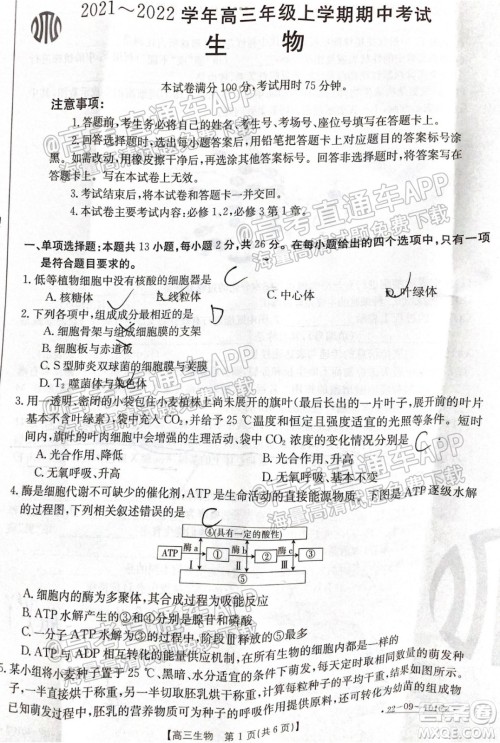 2021～2022 学年高三年级上学期期中考试
生 物
本试卷满分 100 分,考试用时 75 分钟。
注意事项:
1. 答题前,考生务必将自己的姓名、考生号、考场号、座位号填写在答题卡上。
2. 回答选择题时,选出每小题答案后,用铅笔把答题卡上对应题目的答案标号涂
黑。如需改动,用橡皮擦干净后,再选涂其他答案标号。回答非选择题时,将答案写在答
题卡上。写在本试卷上无效。
3. 考试结束后,将本试卷和答题卡一并交回。
4. 本试卷主要考试内容:必修 1、2,必修 3 第 1 章。
一、单项选择题:本题共 13 小题,每小题 2 分,共 26 分。在每小题给出的四个选项中,只有一项
是符合题目要求的。
1. 低等植物细胞中没有核酸的细胞器是 C
A. 核糖体 B. 线粒体 C. 中心体 D. 叶绿体
2. 下列各项中,组成成分最相近的是 D
A. 细胞骨架与组成细胞膜的支架
B. 细胞板与赤道板
C. S 型肺炎双球菌的细胞膜与荚膜
D. T₂ 噬菌体与染色体
3. 用一透明、密闭的小袋包住小麦植株上尚未展开的旗叶(最后长出的一片叶子,展开前的叶片
基本不含叶绿素),袋中充入 CO₂,并给予 25 ℃和温度和适宜强度的光照等条件。短时
间内,旗叶的叶肉细胞中会增强的生理活动、袋中 CO₂ 浓度的变化情况分别是 C
A. 光合作用、降低 B. 光合作用、升高
C. 无氧呼吸、升高 D. 无氧呼吸、基本不变
4. 酶是细胞代谢不可缺少的催化剂,ATP 是生命活动的直接能源物质。下图是 ATP 逐级水解
的过程图,下列相关叙述错误的是 C
④(具有一定的酸性)
ATP 酶 a ① 酶 b ② 酶 c ③
Ⅰ Ⅱ Ⅲ
⑤
A. 细胞内的酶为多聚体,其合成过程为吸能反应
B. ATP 水解产生的③和④分别是腺苷和磷酸
C. 一分子 ATP 水解过程中,阶段Ⅲ释放的⑤最多
D. ATP 与 ADP 相互转化的能量供应机制,在所有生物的细胞内都是一样的
5. 某小组将小麦种子置于 25 ℃、黑暗、水分适宜的条件下萌发,每天定时取相同数量的萌发种
子,一半直接烘干称重,另一半切取胚乳烘干称重,计算每粒的平均干重,结果如图所示。若
已知萌发过程中,胚乳的营养物质一部分用于呼吸作用,一部分转化为幼苗的组成
高三生物 第 1 页(共 6 页)